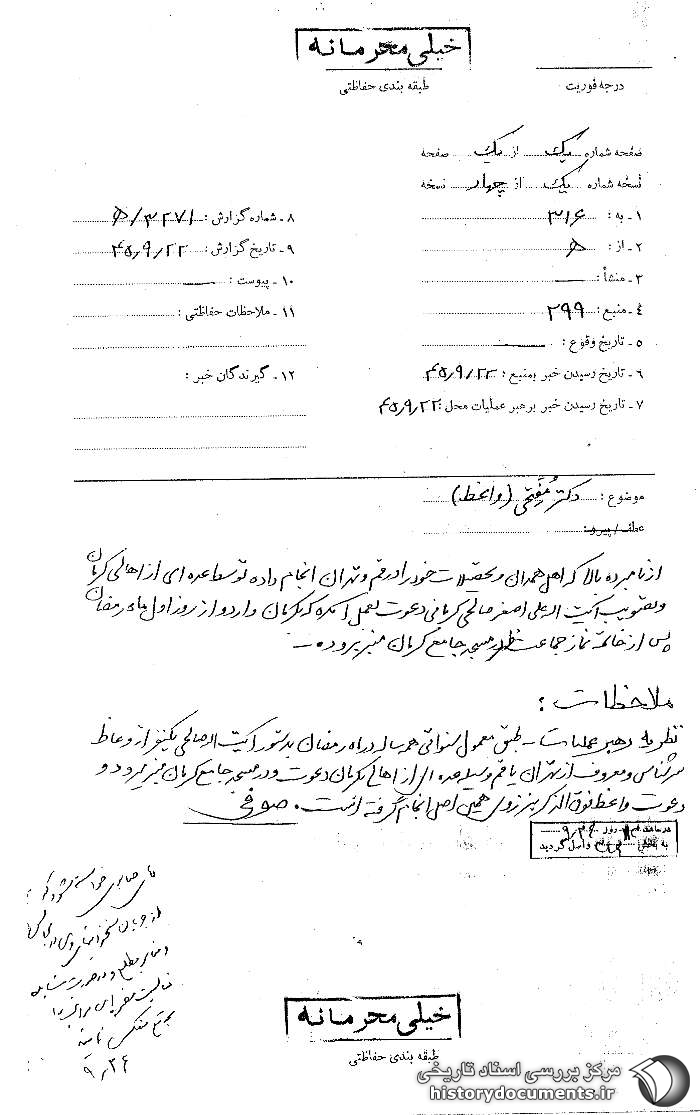 خیلی محرمانه
طبقه بندی حفاظتی
درجه فوریت
صفحه شماره یک از یک صفحه
نسخه شماره یک از چهار نسخه
۱ـ به : ۳۱۶
۲ـ از : ه‍
۳ـ منشأ :
۴ـ منبع : ۲۹۹
۵ـ تاریخ وقوع :
۶ـ تاریخ رسیدن خبر بمنبع : ۴۵/۹/۲۲
۷ـ تاریخ رسیدن خبر برهبر عملیات محل : ۴۵/۹/۲۲
۸ـ شماره گزارش : ۳۲۷۱/ه‍
۹ـ تاریخ گزارش : ۴۵/۹/۲۲
۱۰ـ پیوست :
۱۱ـ ملاحظات حفاظتی :
۱۲ـ گیرندگان خبر :
موضوع : دکتر مفتح (واعظ)
عطف/پیرو :
از نامبرده بالا که اهل همدان و تحصیلات خود را در قم و تهران انجام داده توسط عده ای از اهالی کرمان
و تصویب آیت اله علی اصغر صالحی کرمانی دعوت بعمل آمده که بکرمان وارد و از روز اول ماه رمضان
پس از خاتمه نماز جماعت ظهر در مسجد جامع کرمان منبر برود ه‍ ـ
ملاحظات :
نظریه رهبر عملیات ـ طبق معمول سنواتی همه ساله در ماه رمضان بدستور آیت اله صالحی یکنفر از وعاظ
سرشناس و معروف از تهران یا قم وسیله عده ای از اهالی بکرمان دعوت و در مسجد جامع کرمان منبر میرود و
دعوت واعظ فوق الذکر نیز روی همین اصل انجام گرفته است . صوفی
در ساعت روز ۹/۲۶
به بخش واصل گردید
آقای صابری خواسته شود که
از جریان سخنرانی
۹/۲۶
خیلی محرمانه
طبقه بندی حفاظتی
مرکز بررسی اسناد تاریخی
historydocuments.ir